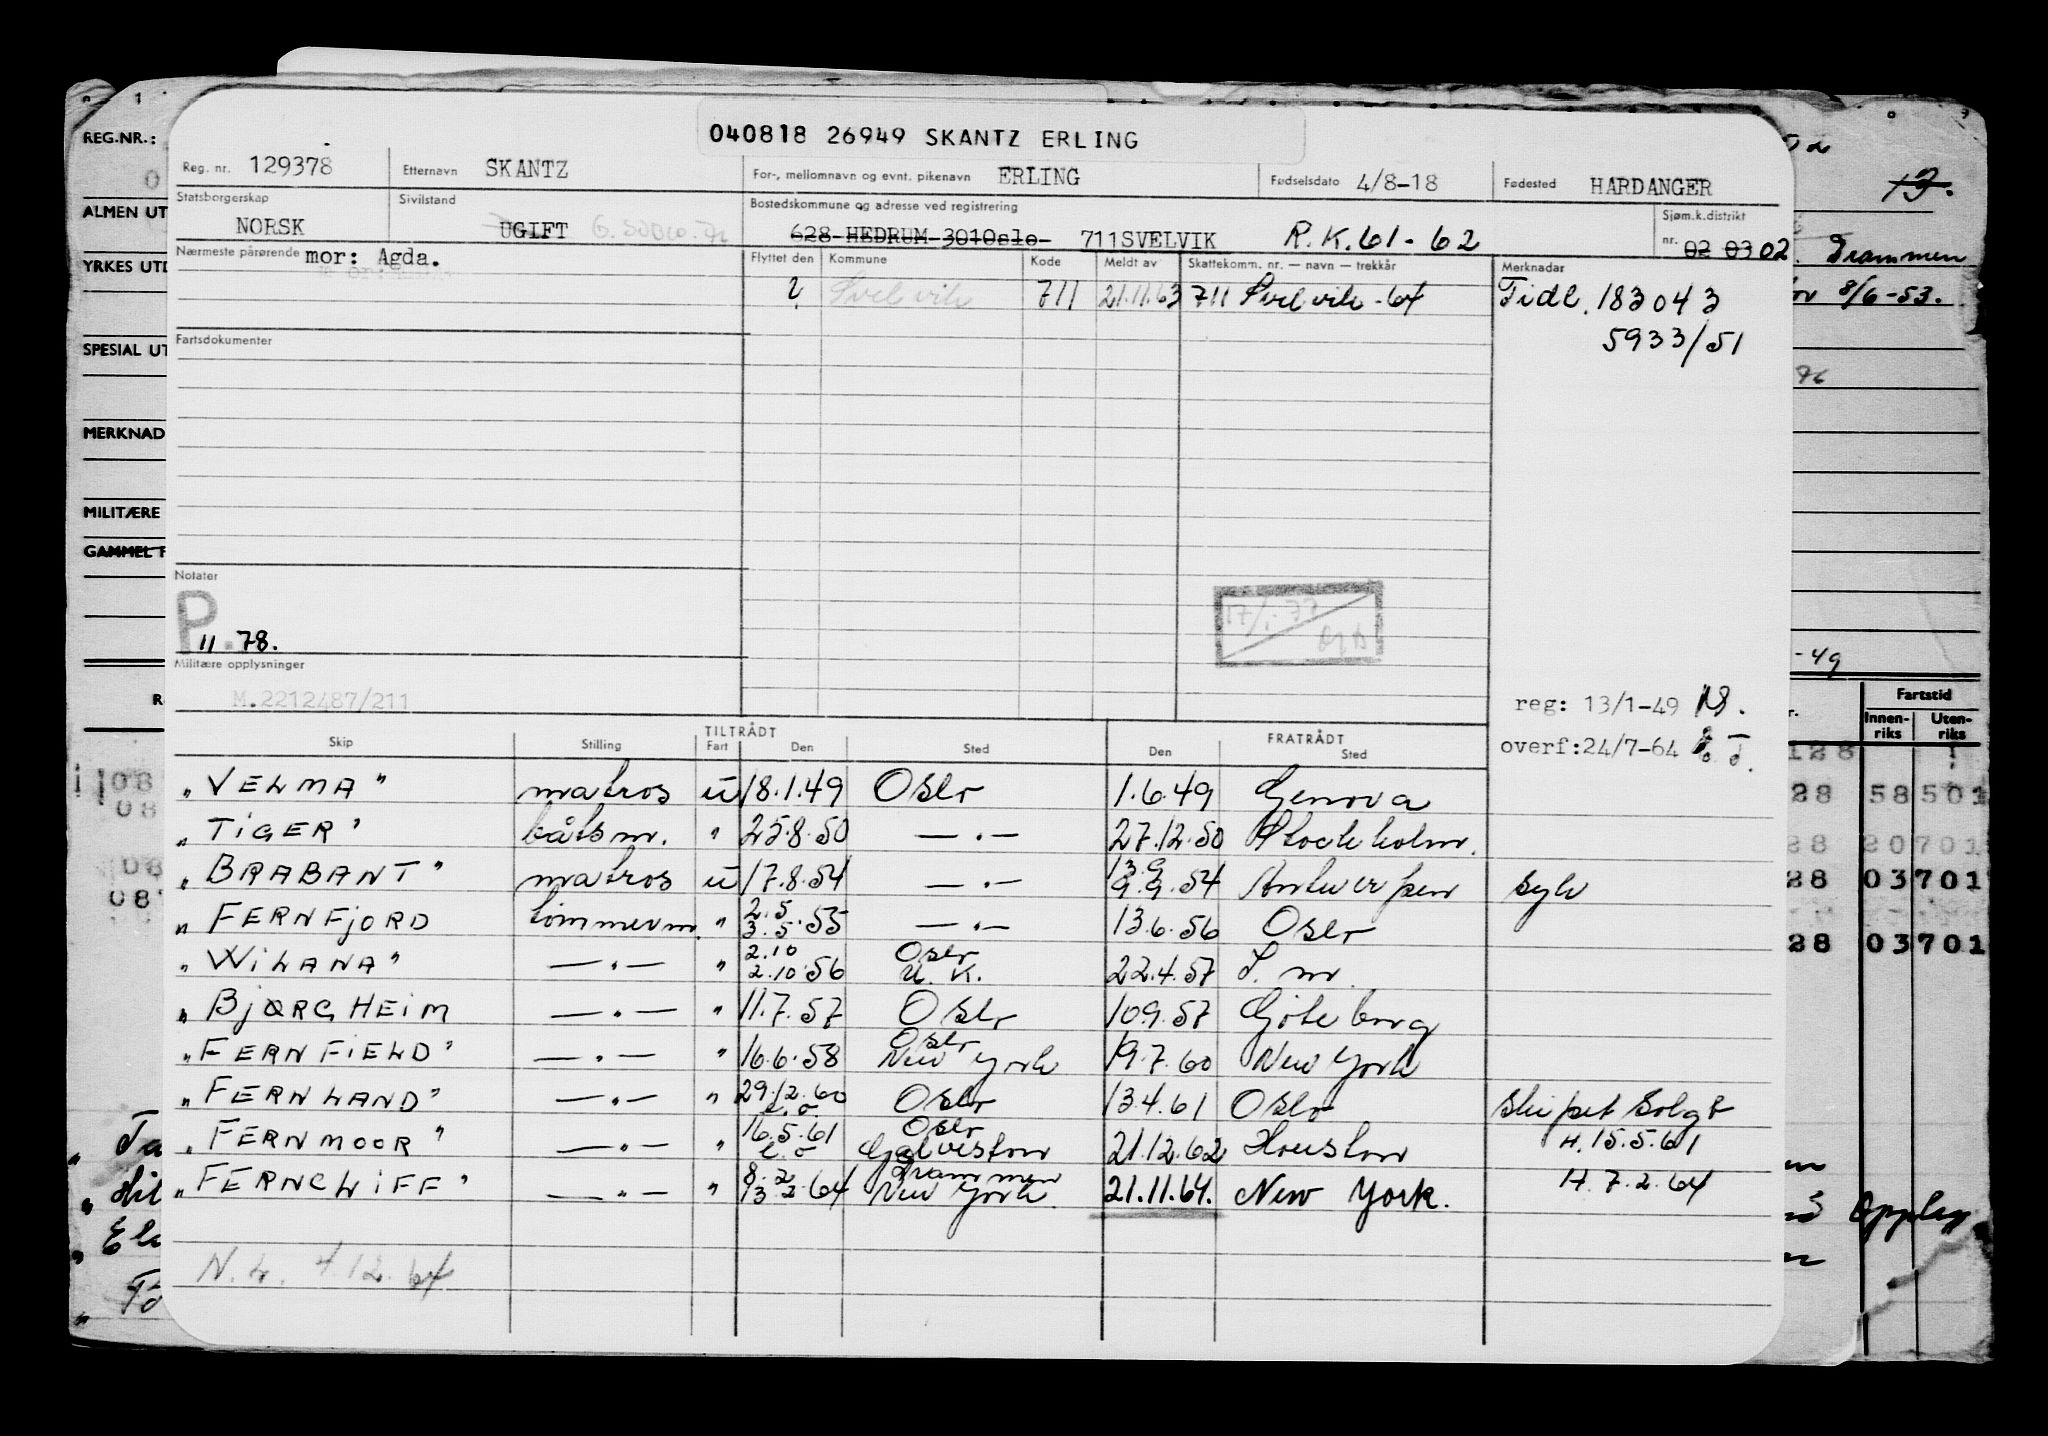 040818 26949 SKANTZ ERLING
REG.NR.:
Reg. nr. 129378 Etternavn SKANTZ For-, mellomnavn og evnt. pikenavn ERLING Fødselsdato 4/8-18 Fødested HARDANGER
13.
ALMEN UT
Statsborgerskap NORSK Sivilstand UGIFT Bostedskommune og adresse ved registrering 628 HEDRUM 3010slo 711SVELVIK R.K.61-62 Sjøm.k.distrikt nr. 02 03 02
Drammen
YRKES UTD
Nærmeste pårørende mor: Agda. Flyttet den Kommune Kode Meldt av Skattekomm. nr. — navn — trekkår Merknadar
? Svelvik 711 21.11.63 711 Svelvik -64 Tidl. 183043
8/6-53.
5933/51
SPESIAL UT
Fartsdokumenter
76
MERKNAD
MILITÆRE
GAMMEL F
Notater
P.
11.78.
17/1.77
Militære opplysninger
M.2212487/211
-49
reg: 13/1-49
overf:24/7-64
Fartstid
Innen-riks Uten-riks
TILTRÅDT FRATRÅDT
Skip Stilling Fart Den Sted Den Sted
"VELMA" matros u 18.1.49 Oslo 1.6.49 Genova
"TIGER" båtsm. " 25.8.50 — " — 27.12.50 Stockholm.
"BRABANT" matros u 17.8.54 — " — 13.9 9.9.54 Antwerpen syk
"FERNFJORD tømmerm. " 2.5 3.5.55 — " — 13.6.56 Oslo
"WILANA" — " — " 2.10 2.10.56 Oslo U.K. 22.4.57 T. m.
"BJØRGHEIM — " — " 11.7.57 Oslo 10.9.57 Göteborg
"FERNFIELD" — " — " 16.6.58 Oslo New York 19.7.60 New York
"FERNLAND" — " — " 29.12.60 Oslo 13.4.61 Oslo Skipet solgt
"FERNMOOR" — " — " 16.5.61 Oslo Galveston 21.12.62 Houston H. 15.5.61
"FERNCLIFF" — " — " 8.2 13.2.64 Drammen New York. 21.11.64. New York. H. 7.2.64
N.L. 4.12.64
128
28 58 501
28 20701
28 03701
28 03701
08
08
08
08